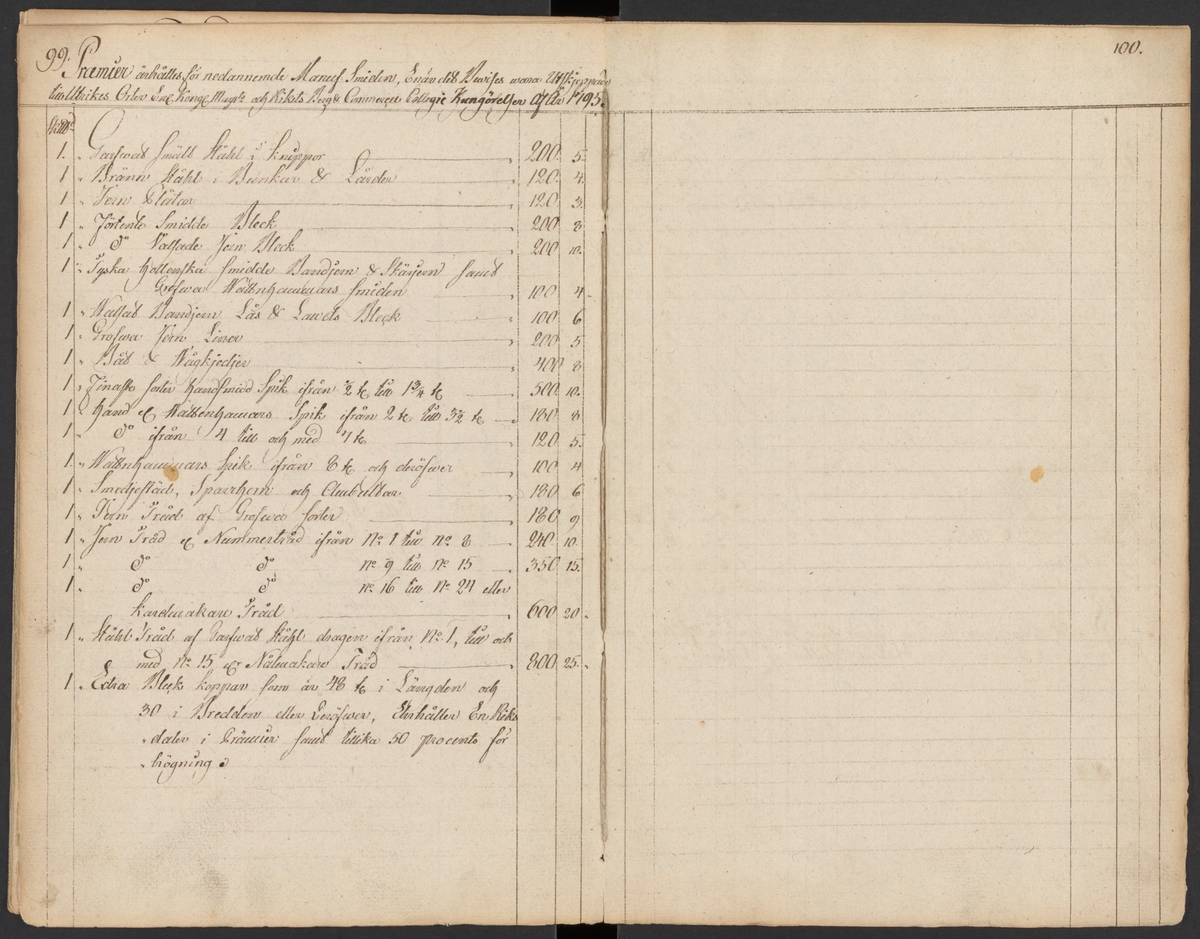 99.
Præmier ärhålles för nedannemde Manuf Smiden, Enär det Bevises wara Utskeppade
till Utrikes Orter Enl. Kongl. Mayts och Rikets Berg & Commerce Collegie Kungörelser af År 1795.
Skttd
1. „ Garfwat Smält Stähl i knippor 200. 5.
1 „ Bränn Stähl i Bunkar & Lårder 120. 4.
1 „ Jern Plåtar 120. 3.
1 „ Förtente Smidde Bleck 200. 8.
1 „ Do Valsade Jern Bleck 200. 10.
1 „ Tyska Hollenska Smidde Bandjern & Skärjern samt
Grofwa Wattnhammars Smiden 100. 4.
1 „ Walsat Bandjern Lås & Lawets Bleck 100. 6
1 „ Grofwa Jern Linor 200. 5
1 „ Båt & Wågkjedjer 400. 8.
1 „ Finaste sorter Handsmid Spik ifrån 1/2 tt till 1 3/4 tt 500. 10.
1 „ Hand & Wattenhamars Spik ifrån 2 tt till 3 1/2 tt 180. 8
1 „ Do ifrån 4 till och med 7 tt 120. 5.
1 „ Wattnhammars Spik ifrån 8 tt och deröfwer 100. 4
1 „ Smedjestäd, Sparrhorn och Ambultar 180. 6
1 „ Jern Tråd af Grofwa sorter 180. 9
1 „ Jern Tråd & Nummertråd ifrån No 1 till No 8 240. 10.
1 „ Do Do No 9 till No 15 350. 15.
1 „ Do Do No 16 till No 24 eller
Kardmakare Tråd 600. 20.
1 „ Stähl Tråd af Garfwat Stähl dragen ifrån No 1, till och
med No 15 & Nålmakare Tråd 800. 25.
1 „ Edra Bleck koppar som är 48 tt i Längden och
30 i Bredden eller deröfwer, Ehrhåller En Riks
„ daler i Prämier samt tillika 50 procents för
„ högning.
100.